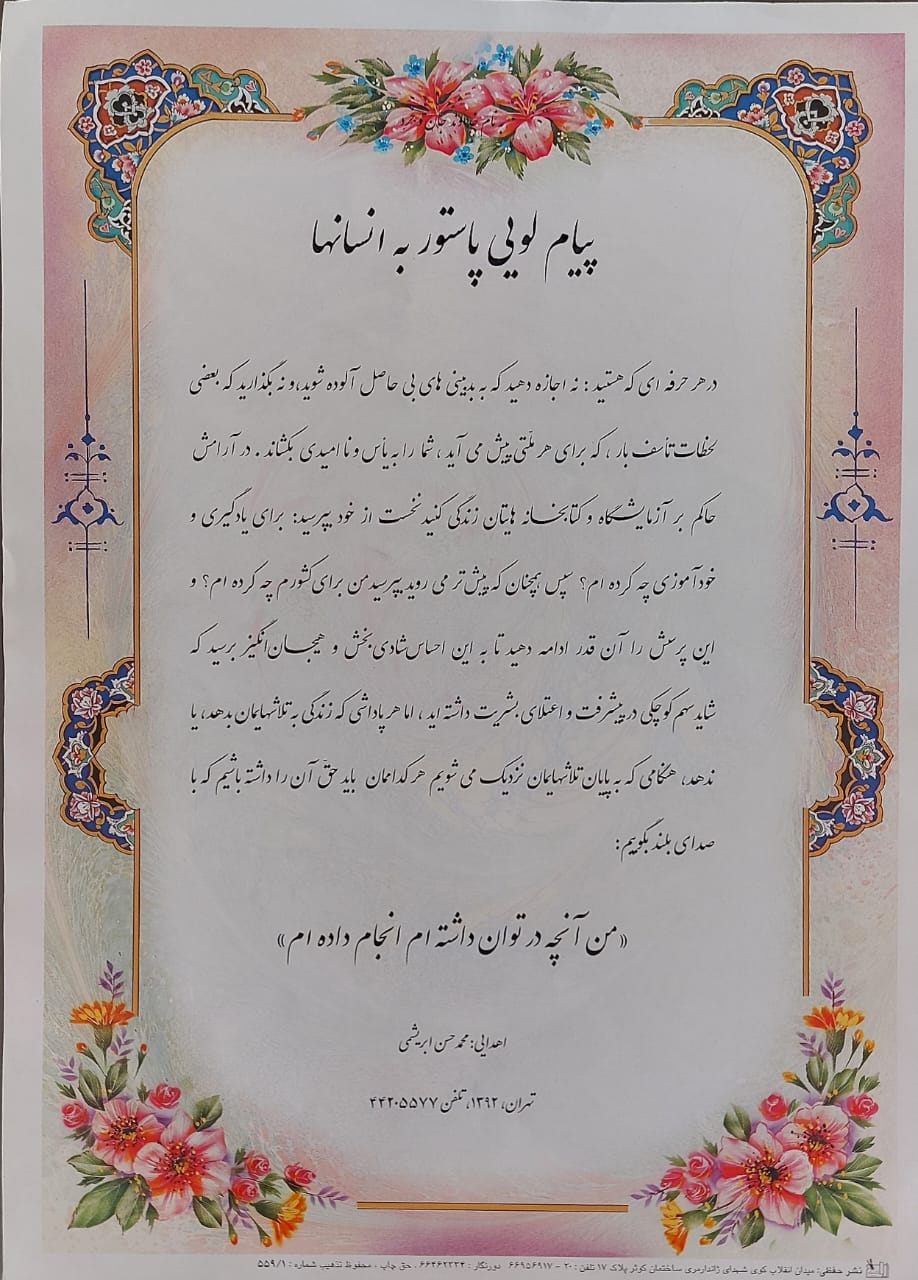 پیام لویی پاستور به انسانها
در هر حرفه ای که هستید : نه اجازه دهید که به بدبینی های بی حاصل آلوده شوید، و نه بگذارید که بعضی
لحظات تأسف بار ، که برای هر ملّتی پیش می آید ، شما را به یأس و نا امیدی بکشاند . در آرامش
حاکم بر آزمایشگاه و کتابخانه هایتان زندگی کنید نخست از خود بپرسید: برای یادگیری و
خودآموزی چه کرده ام؟ سپس همچنان که پیش تر می روید بپرسید من برای کشورم چه کرده ام؟ و
این پرسش را آن قدر ادامه دهید تا به این احساس شادی بخش و هیجان انگیز برسید که
شاید سهم کوچکی در پیشرفت و اعتلای بشریت داشته اید ، اما هر پاداشی که زندگی به تلاشهایمان بدهد، یا
ندهد، هنگامی که به پایان تلاشهایمان نزدیک می شویم هر کداممان باید حقّ آن را داشته باشیم که با
صدای بلند بگوییم:
«من آنچه در توان داشته ام انجام داده ام»
اهدایی: محمد حسن ابریشمی
تهران، ۱۳۹۲، تلفن ۴۴۲۰۵۵۷۷
نشر حفظی: میدان انقلاب کوی شهدای ژاندارمری ساختمان کوثر پلاک ۱۷ تلفن : ۲۰ - ۶۶۹۵۶۹۱۷ دورنگار : ۶۶۴۶۲۳۳۴ ، حق چاپ ، محفوظ تذهیب شماره : ۵۵۹/۱